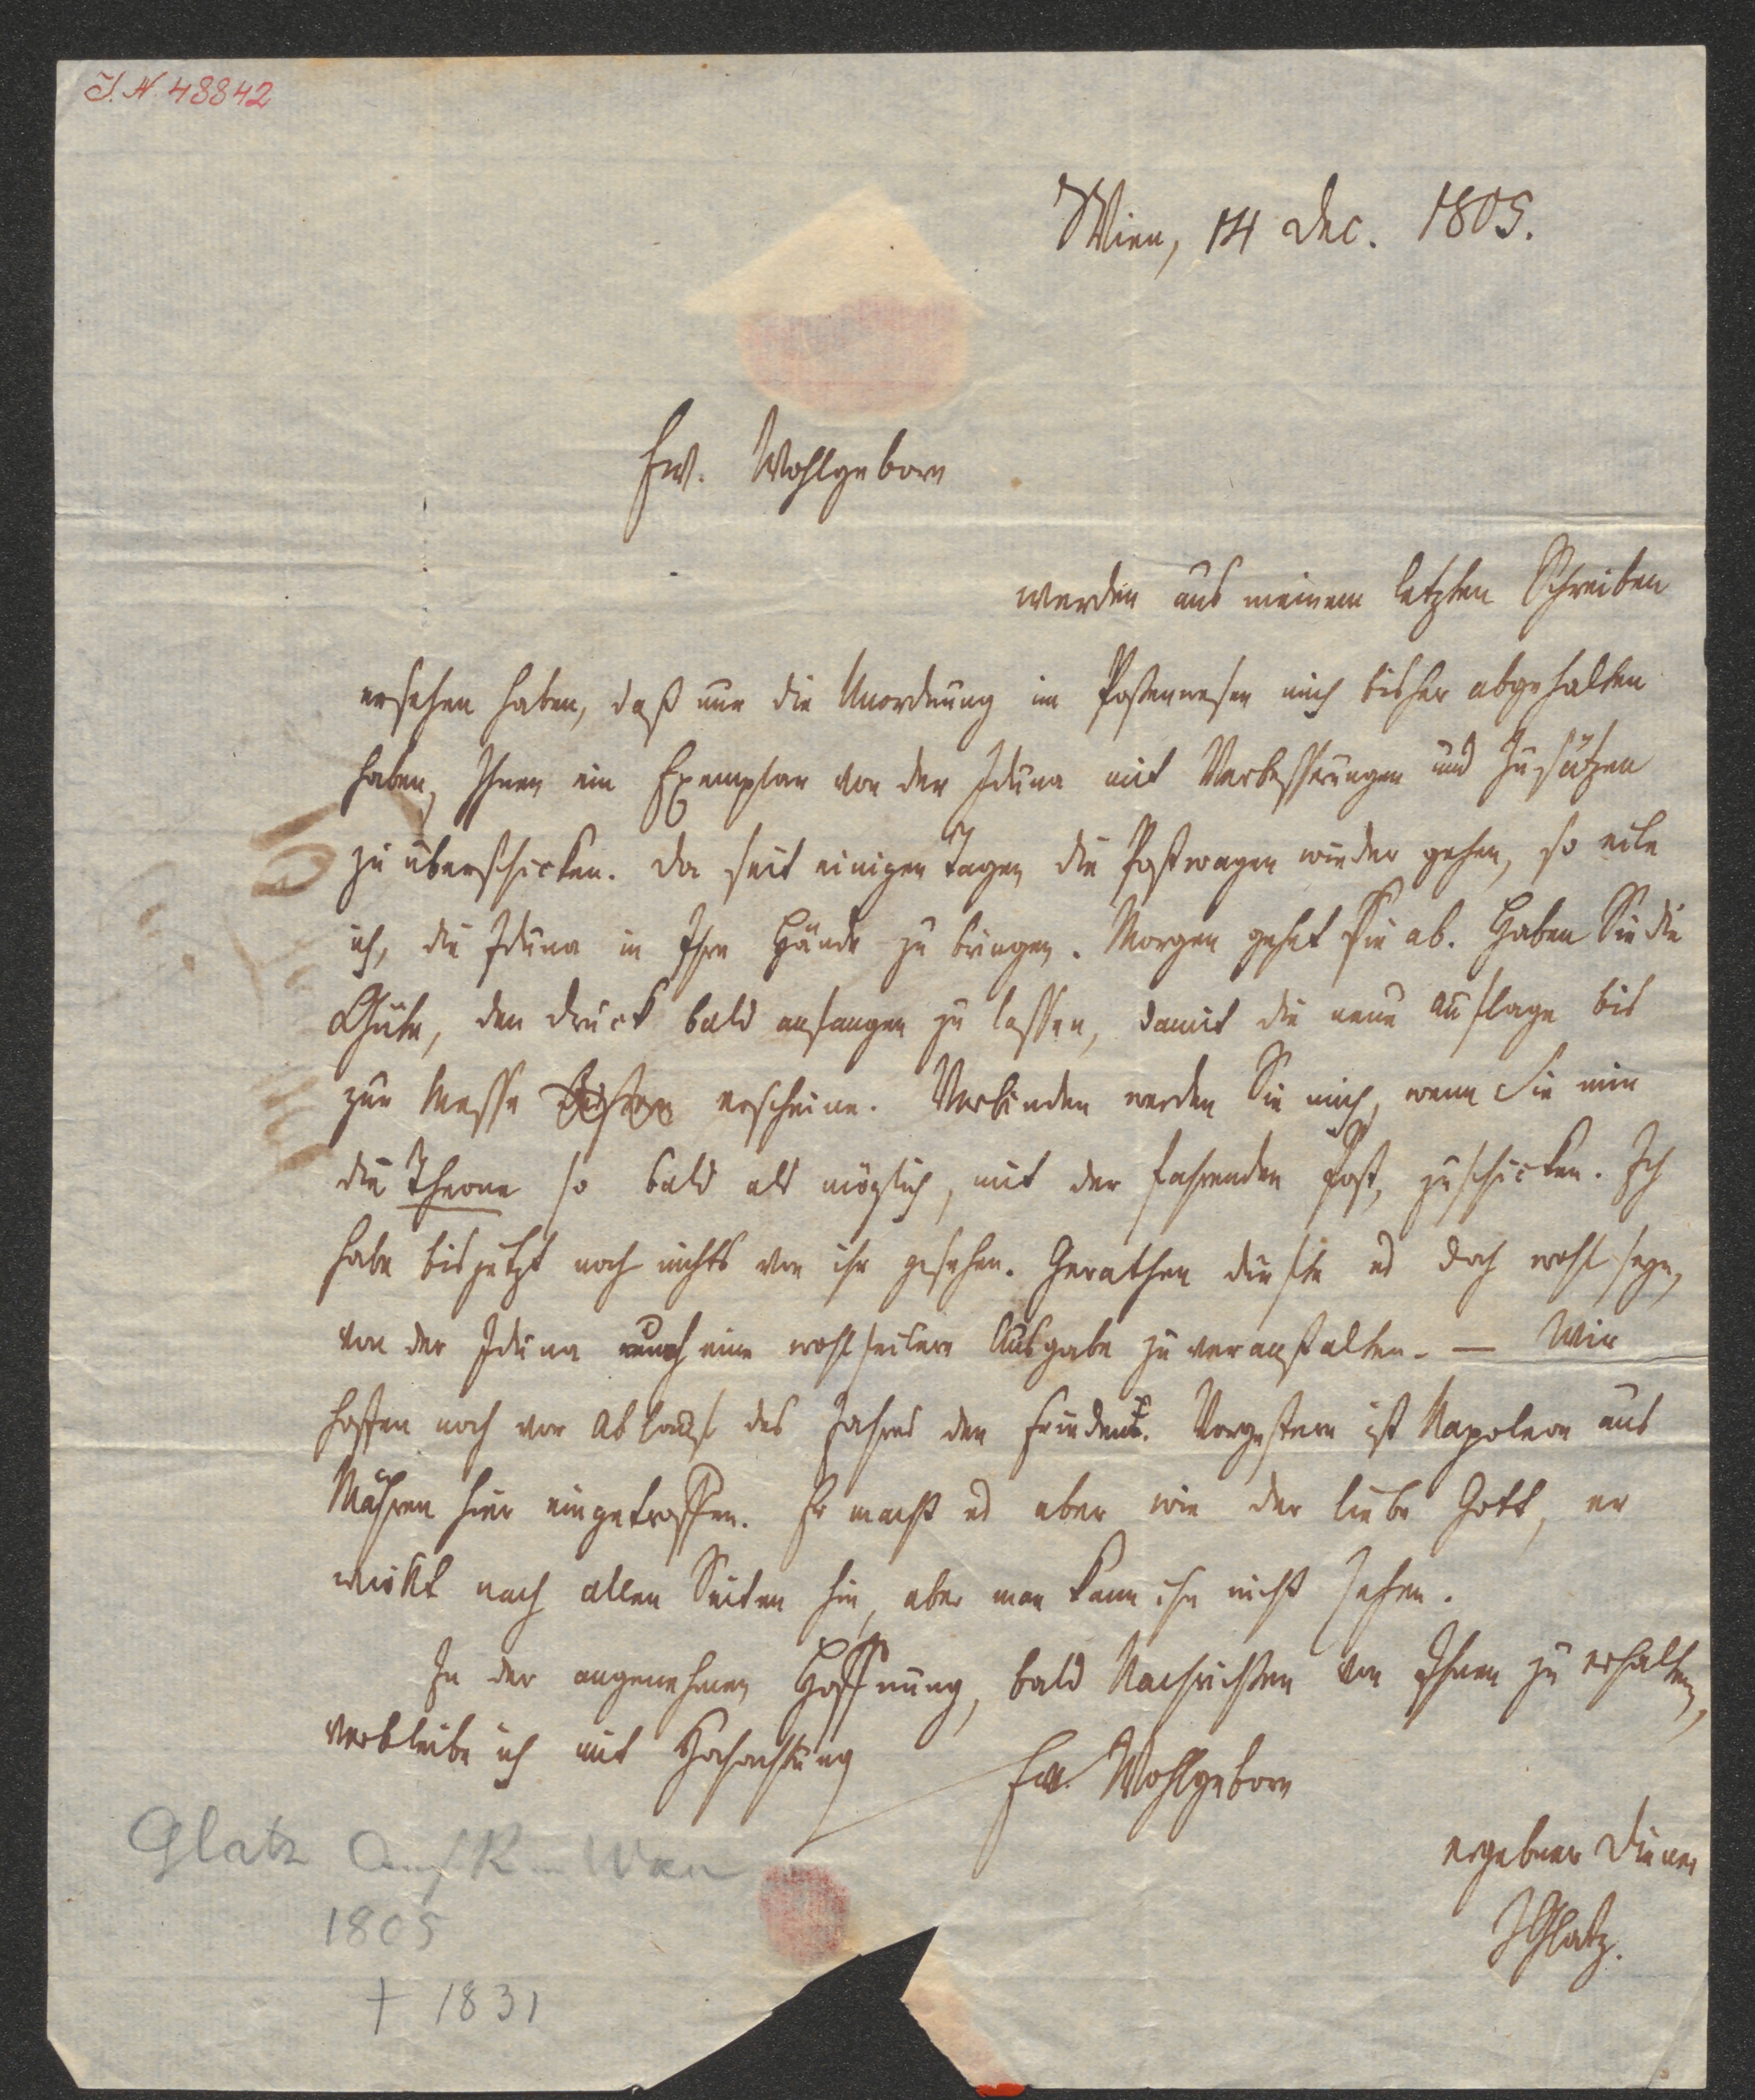 I. N. 48842
Wien, 14 Dec. 1805.
Ew. Wohlgeborn
werden aus meinem letzten Schreiben
ersehen haben, daß nur die Unordnung im Postenwesen mich bisher abgehalten
haben, Ihnen ein Exemplar von der Iduna mit Verbesserungen und Zusätzen
zu überschicken. Da seit einigen Tagen die Postwagen wieder gehen, so eile
ich, die Iduna in Ihre Hände zu bringen. Morgen gehet sie ab. Haben Sie die
Güte, den Druck bald anfangen zu lassen, damit die neue Auflage bis
zur Messe erscheine. Verbinden werden Sie mich, wenn Sie mir
die Theone so bald als möglich, mit der fahrenden Post, zuschicken. Ich
habe bis jetzt noch nichts von ihr gesehen. Gerathen dürfte es doch wohl seyn,
von der Iduna auch eine wohlfeilere Ausgabe zu veranstalten. — Wir
hoffen noch vor Ablauf des Jahres den Frieden. Vorgestern ist Napoleon aus
Mähren hier eingetroffen. Er macht es aber wie der liebe Gott, er
wirkt nach allen Seiten hin, aber man kann ihn nicht sehen.
In der angenehmen Hoffnung, bald Nachrichten von Ihnen zu erhalten,
verbleibe ich mit Hochachtung
Ew. Wohlgeborn
ergebner Diener
JGlatz.
Glatz
1805
† 1831